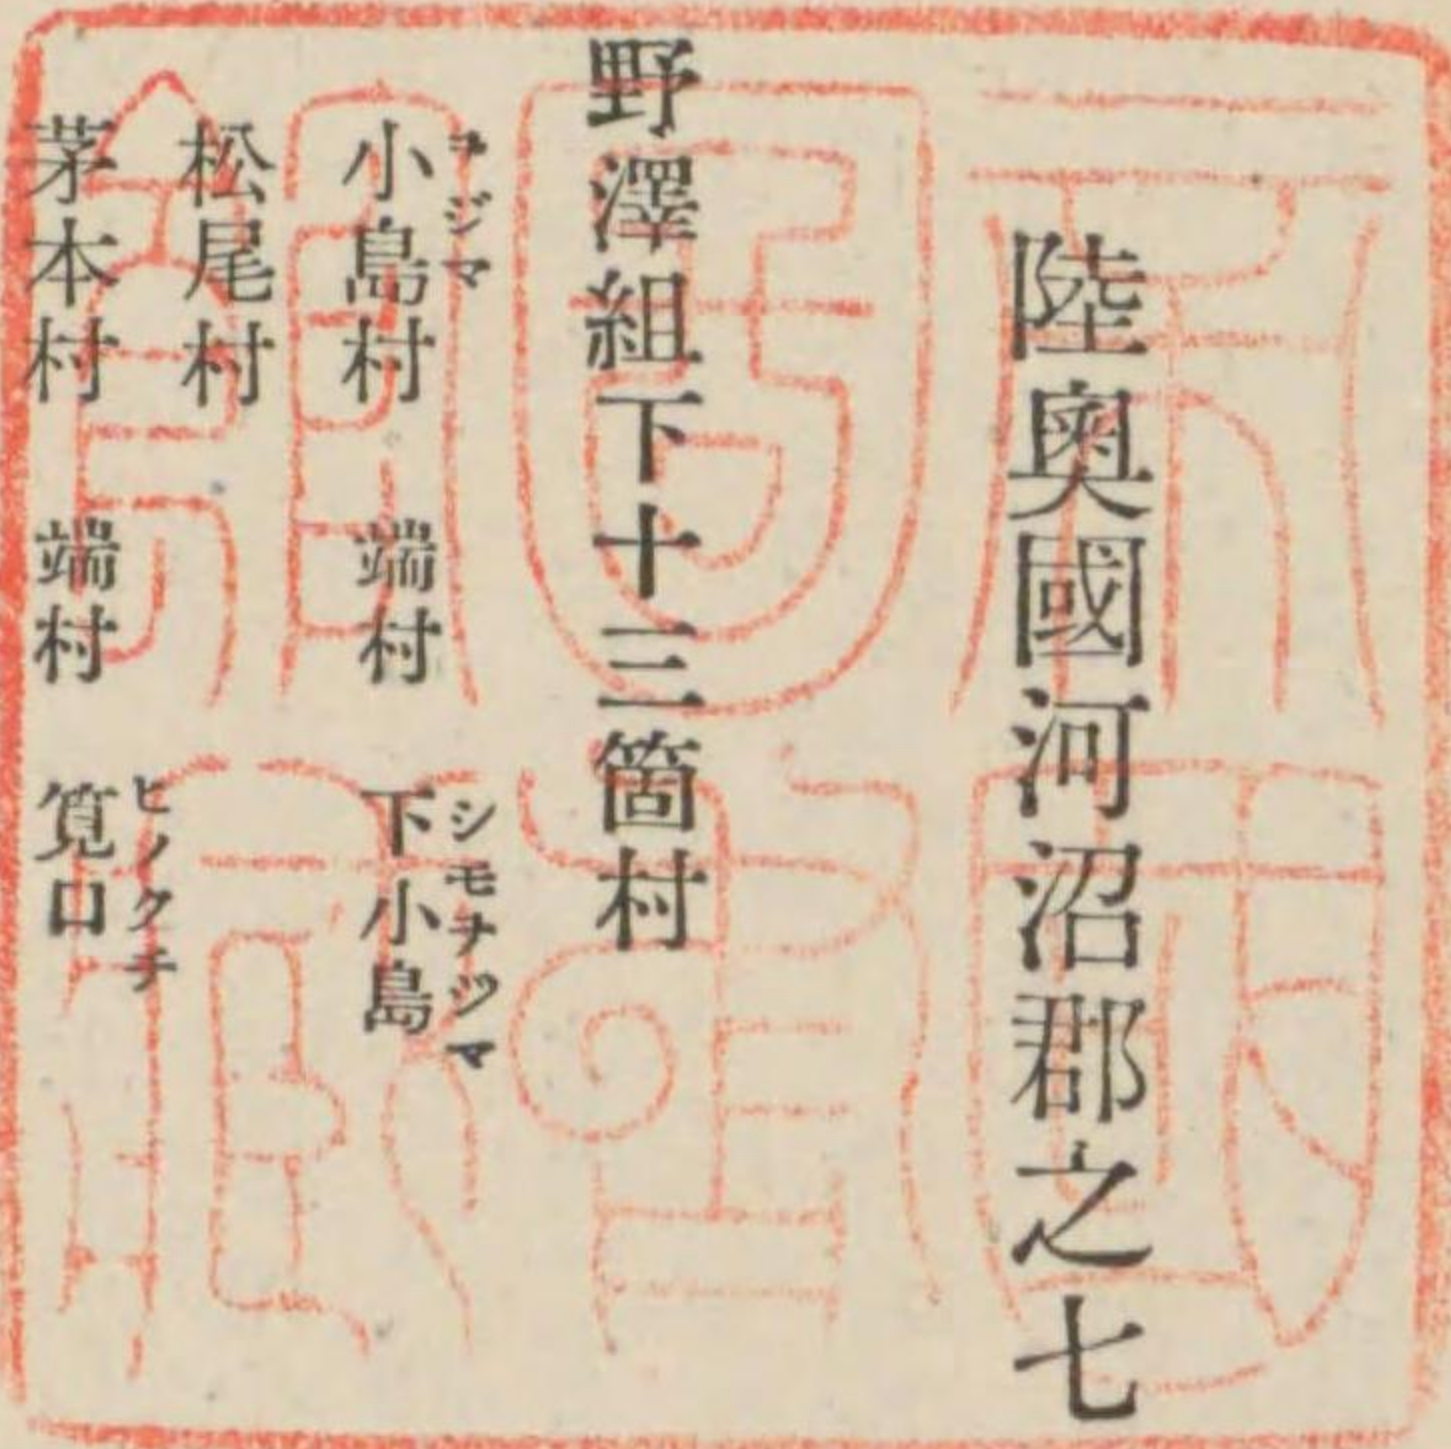 陸奧國河沼郡之七
野澤組下十三箇村
小島村 端村 下小島
コジマ シモヲジマ
松尾村
茅本村 端村 筧口
ヒノクチ